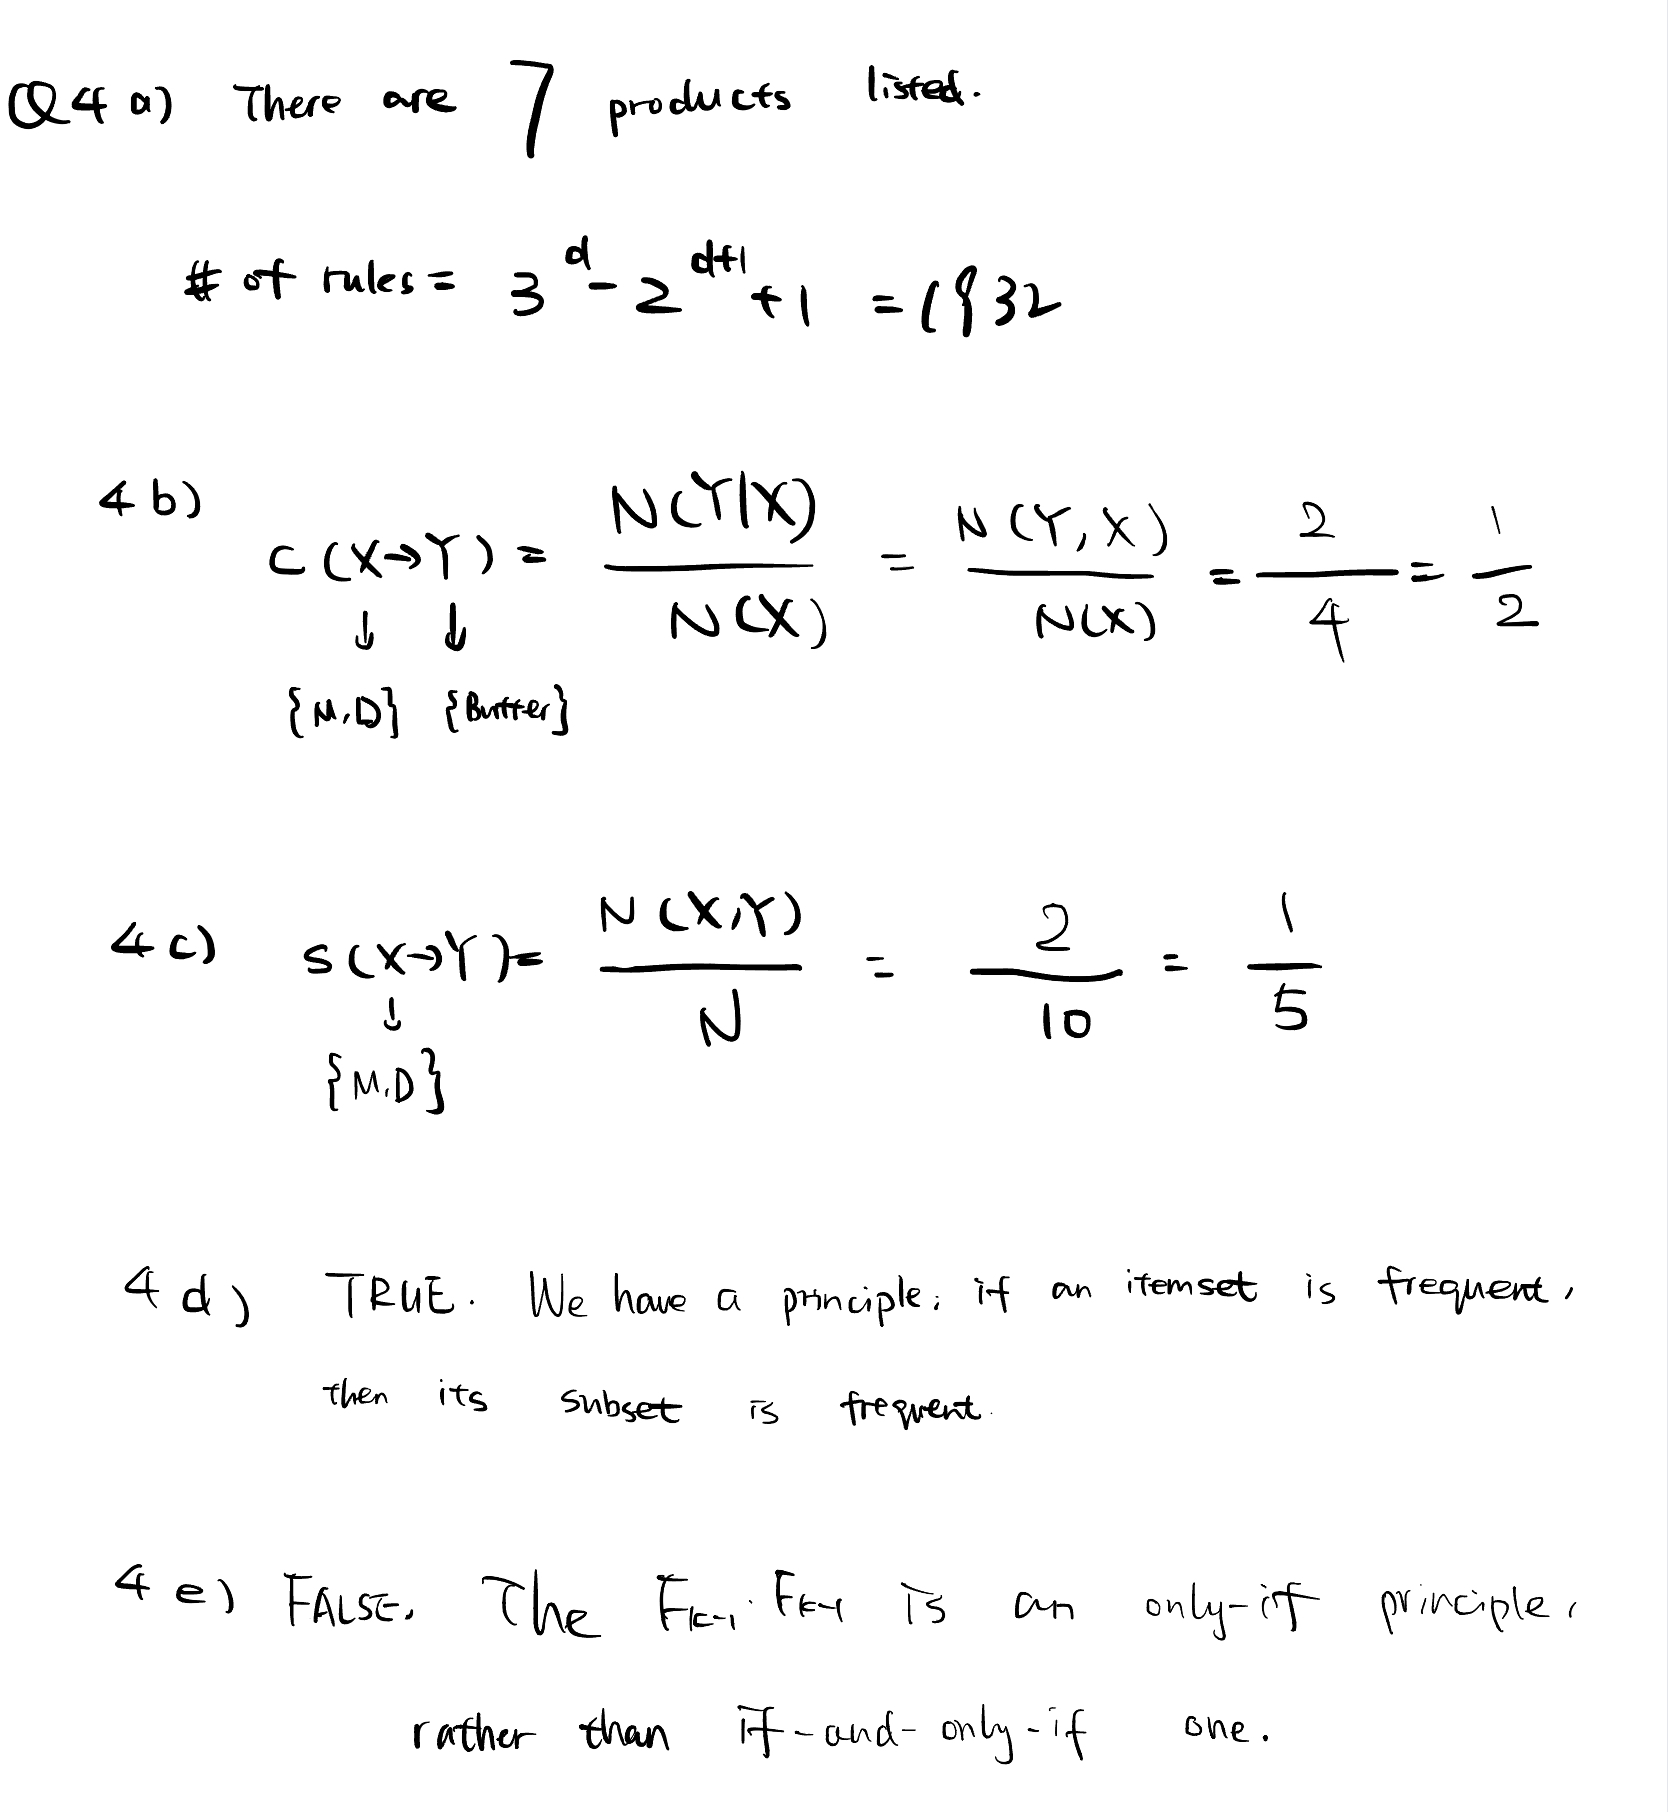 Q4 a) There are 7 products listed.
# of rules = 3^d - 2^{d+1} + 1 = 1932
4 b) C(X→Y) = N(Y|X) / N(X) = N(Y,X) / N(X) = 2/4 = 1/2
↓ ↓
{M,D} {Butter}
4 c) S(X→Y) = N(X,Y) / N = 2/10 = 1/5
↓
{M.D}
4 d) TRUE. We have a principle; if an itemset is frequent,
then its subset is frequent.
4 e) FALSE. The F_{k-1}·F_{k-1} is an only-if principle,
rather than if-and-only-if one.